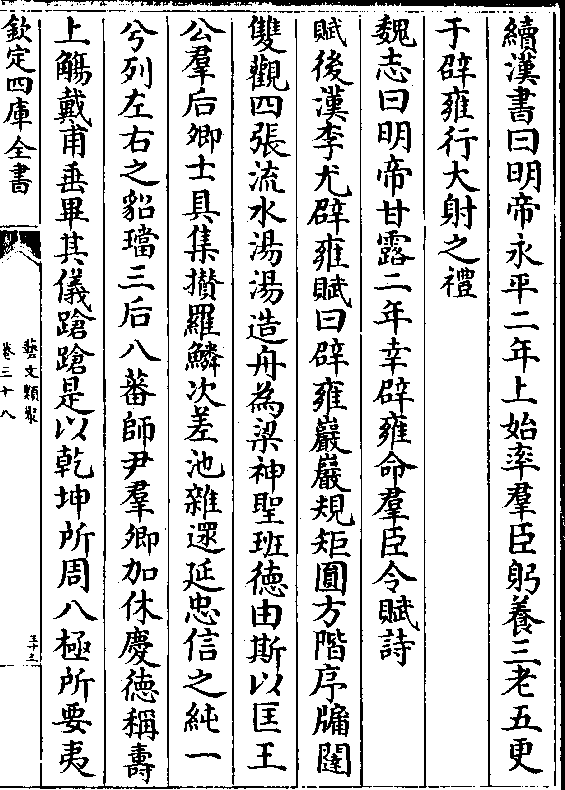 續漢書曰明帝永平二年上始率羣臣躬養三老五更
于辟雍行大射之禮
魏志曰明帝甘露二年幸辟雍命羣臣令賦詩
賦後漢李尤辟雍賦曰辟雍巖巖規矩圓方階序牖闥
雙觀四張流水湯湯造舟為梁神聖班德由斯以匡王
公羣后卿士具集攢羅鱗次差池雜遝延忠信之純一
兮列左右之貂璫三后八蕃師尹羣卿加休慶德稱壽
上觴戴甫垂畢其儀蹌蹌是以乾坤所周八極所要夷
欽定四庫全書
藝文類聚
卷三十八
三十三